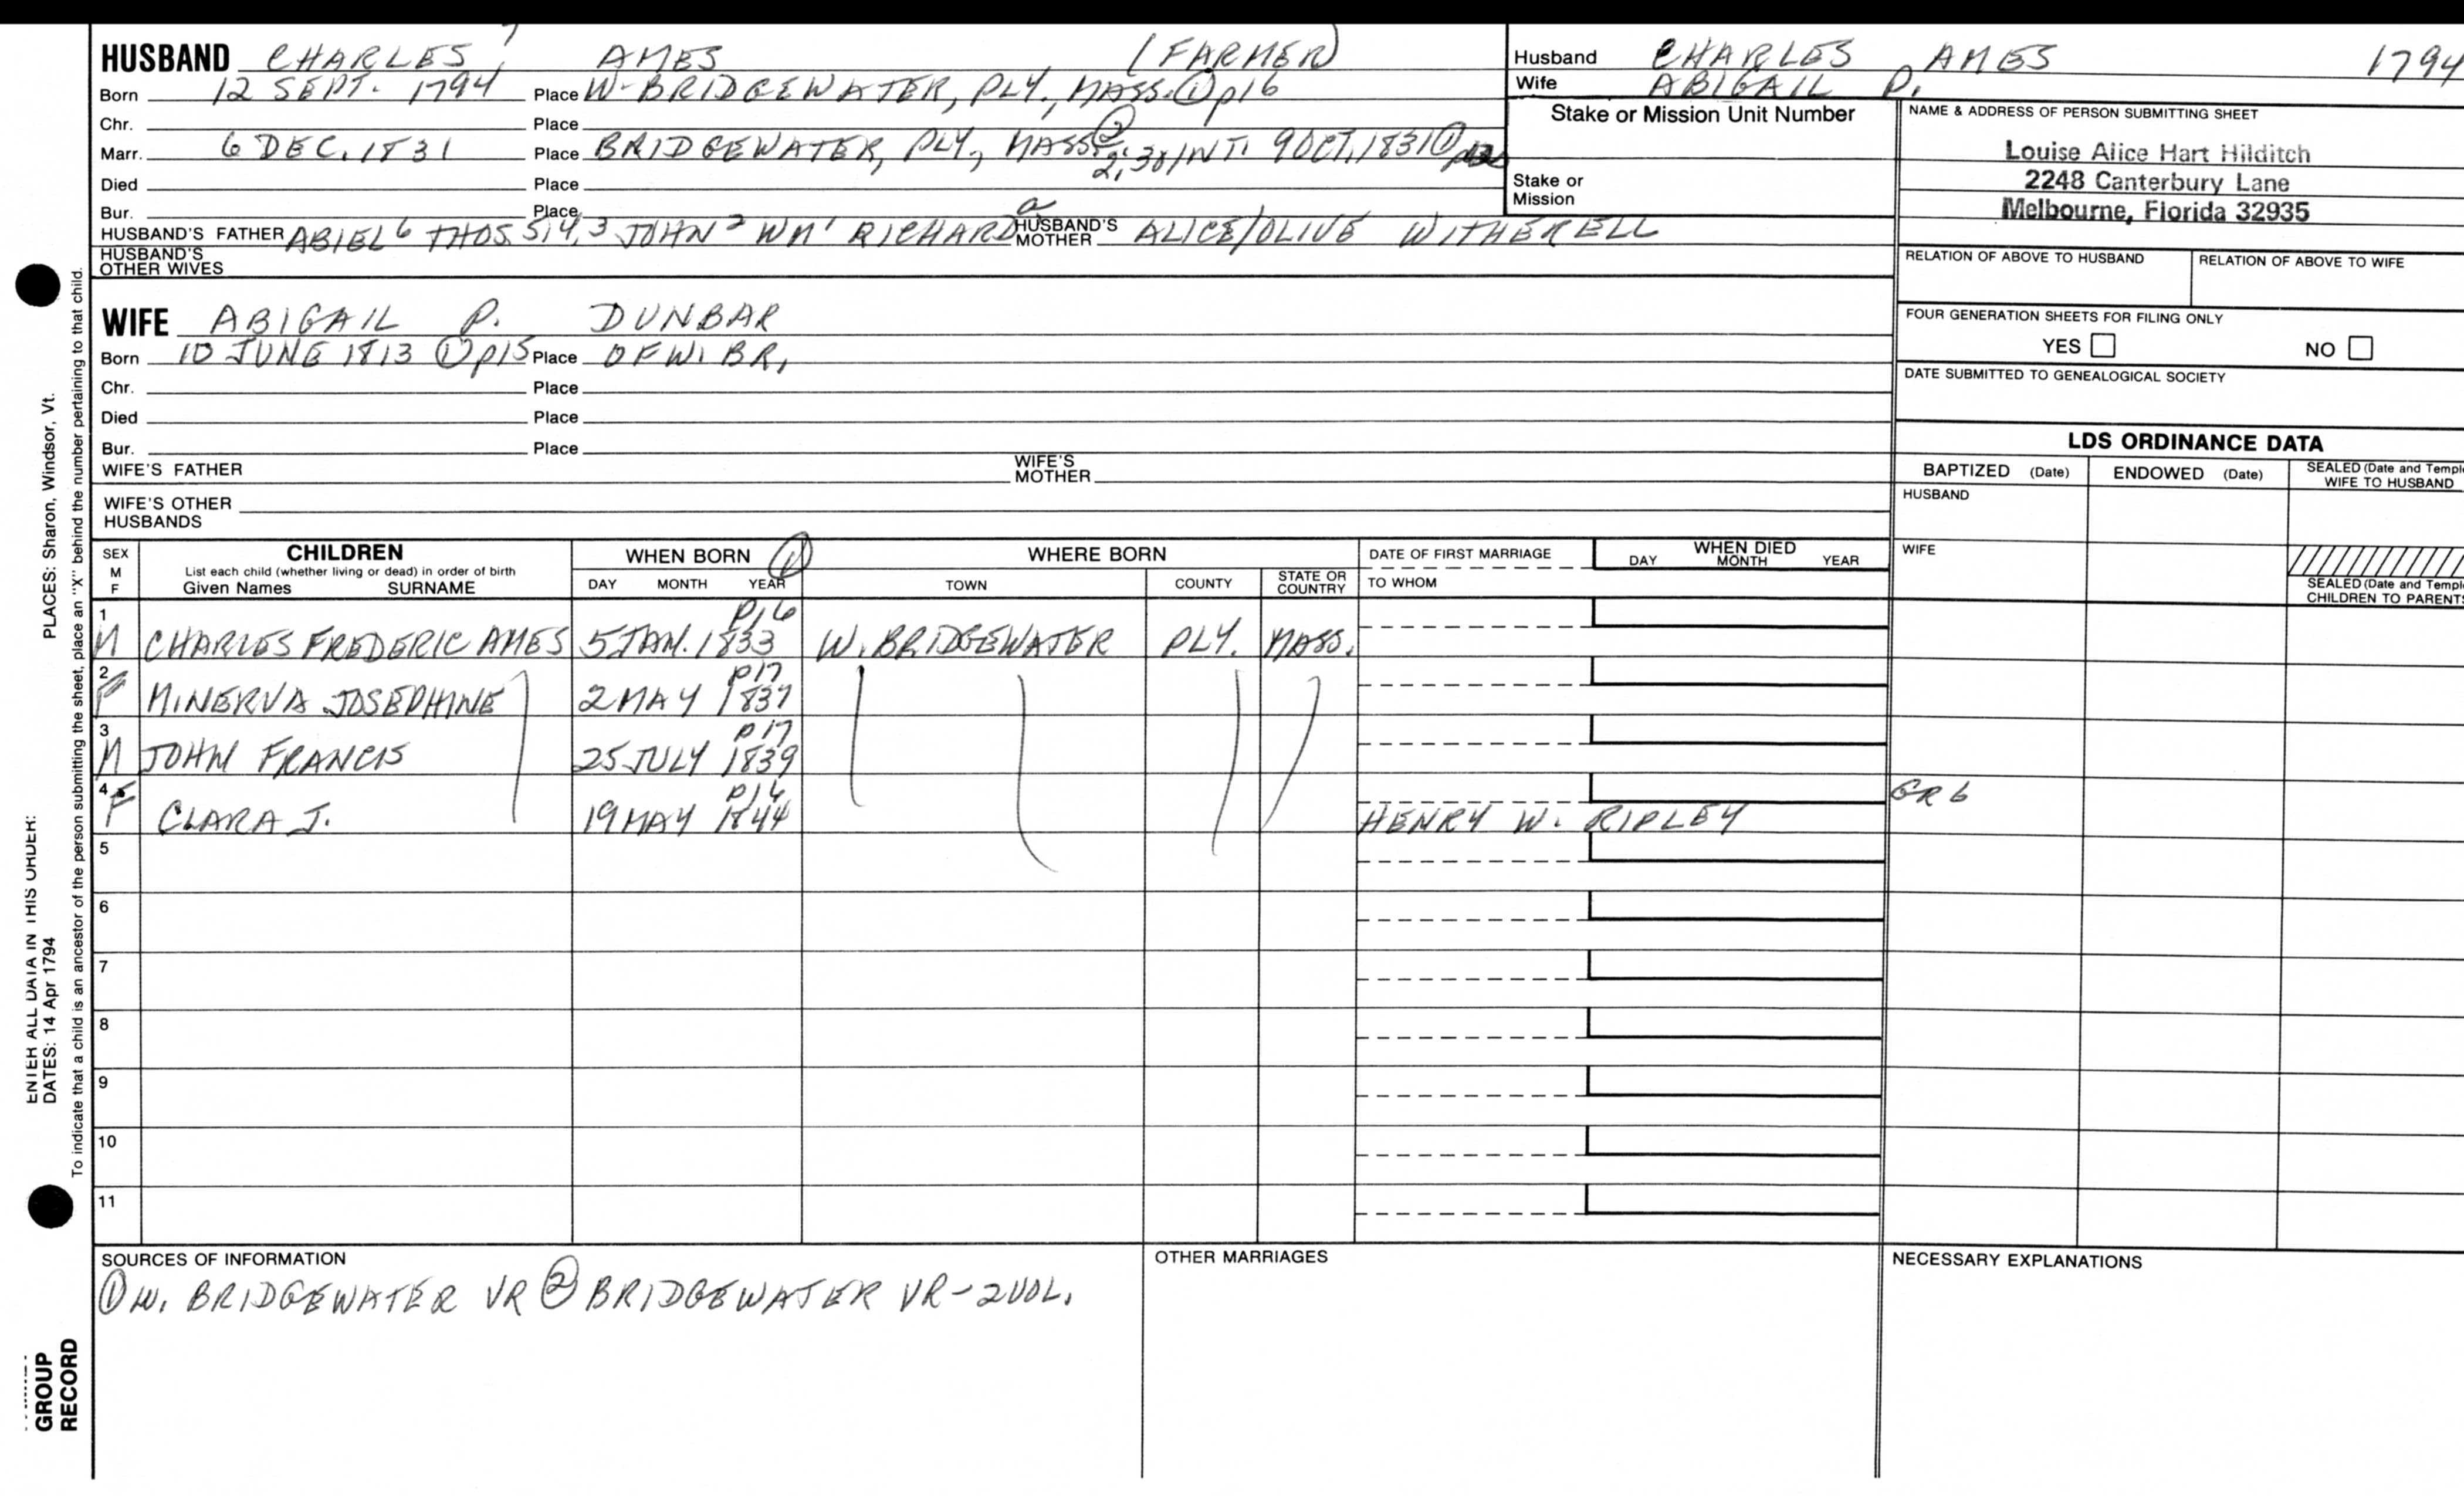 HUSBAND CHARLES 7 AMES (FARMER)
Born 12 SEPT. 1794 Place W. BRIDGEWATER, PLY., MASS. ① p16
Chr. Place
Marr. 6 DEC. 1831 Place BRIDGEWATER, PLY., MASS. ② 2:30/INT. 9 OCT. 1831 ①
Died Place
Bur. Place
HUSBAND'S FATHER ABIEL 6 THOS 5,4,3 JOHN 2 WM 1 RICHARD a HUSBAND'S MOTHER ALICE/OLIVE WITHERELL
HUSBAND'S OTHER WIVES
WIFE ABIGAIL P. DUNBAR
Born 10 JUNE 1813 ① p15 Place OF W. BR,
Chr. Place
Died Place
Bur. Place
WIFE'S FATHER WIFE'S MOTHER
WIFE'S OTHER HUSBANDS
Husband CHARLES AMES 1794
Wife ABIGAIL P.
Stake or Mission Unit Number
Stake or Mission
NAME & ADDRESS OF PERSON SUBMITTING SHEET
Louise Alice Hart Hilditch
2248 Canterbury Lane
Melbourne, Florida 32935
RELATION OF ABOVE TO HUSBAND RELATION OF ABOVE TO WIFE
FOUR GENERATION SHEETS FOR FILING ONLY
YES NO
DATE SUBMITTED TO GENEALOGICAL SOCIETY
LDS ORDINANCE DATA
BAPTIZED (Date) ENDOWED (Date) SEALED (Date and Templ
WIFE TO HUSBAND
HUSBAND
WIFE
SEALED (Date and Templ
CHILDREN TO PARENTS
SEX M F CHILDREN WHEN BORN ① WHERE BORN DATE OF FIRST MARRIAGE WHEN DIED
List each child (whether living or dead) in order of birth
Given Names SURNAME DAY MONTH YEAR TOWN COUNTY STATE OR COUNTRY TO WHOM DAY MONTH YEAR
1 p16
M CHARLES FREDERIC AMES 5 JAN. 1833 W. BRIDGEWATER PLY. MASS.
2 p17
F MINERVA JOSEPHINE 2 MAY 1837
3 p17
M JOHN FRANCIS 25 JULY 1839
4 p16 GR 6
F CLARA J. 19 MAY 1844 HENRY W. RIPLEY
5
6
7
8
9
10
11
SOURCES OF INFORMATION
① W. BRIDGEWATER VR ② BRIDGEWATER VR-2VOL.
OTHER MARRIAGES
NECESSARY EXPLANATIONS
ENTER ALL DATA IN THIS ORDER:
DATES: 14 Apr 1794 PLACES: Sharon, Windsor, Vt.
To indicate that a child is an ancestor of the person submitting the sheet, place an "X" behind the number pertaining to that child.
GROUP
RECORD